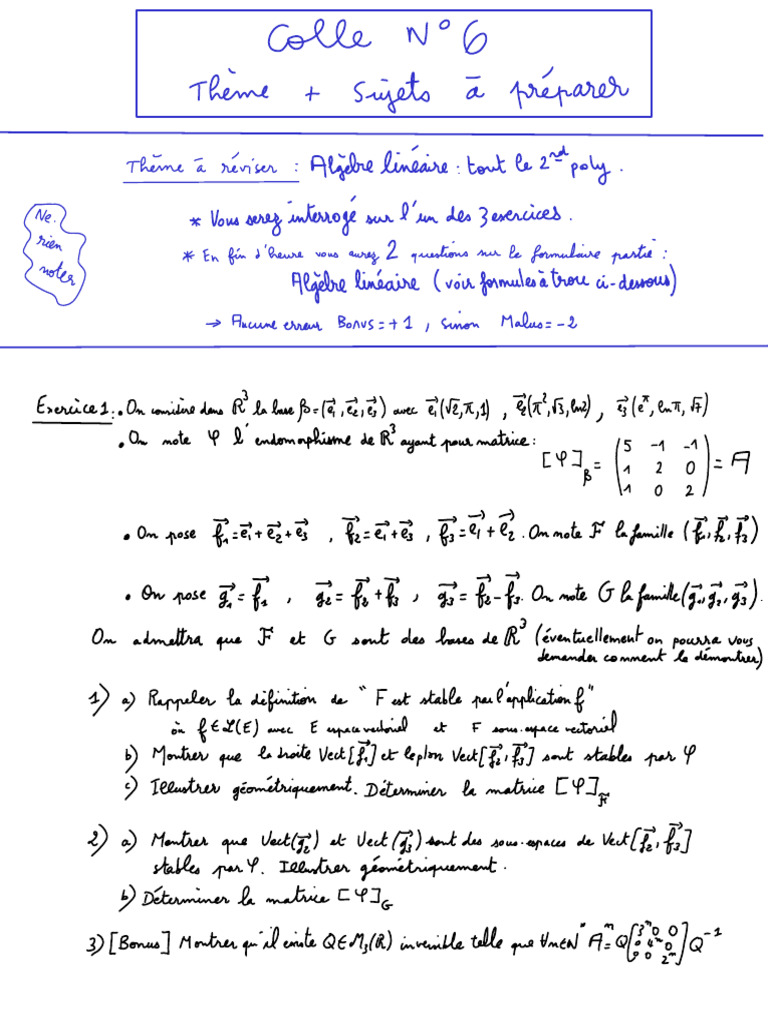 Colle N°6
Thème + Sujets à préparer
Thème à réviser : Algèbre linéaire : tout le 2nd poly.
Ne rien noter
* Vous serez interrogé sur l'un des 3 exercices.
* En fin d'heure vous aurez 2 questions sur le formulaire partie :
Algèbre linéaire (voir formules à trou ci-dessous)
→ Aucune erreur Bonus = +1, sinon Malus = -2
Exercice 1 : • On considère dans ℝ³ la base β = (e₁⃗, e₂⃗, e₃⃗) avec e₁⃗(√2, π, 1), e₂⃗(π², √3, ln2), e₃⃗(e^π, ln π, √7)
• On note φ l'endomorphisme de ℝ³ ayant pour matrice :
[φ]_β = (5 -1 -1
1 2 0
1 0 2) = A
• On pose f₁⃗ = e₁⃗ + e₂⃗ + e₃⃗, f₂⃗ = e₁⃗ + e₃⃗, f₃⃗ = e₁⃗ + e₂⃗. On note F la famille (f₁⃗, f₂⃗, f₃⃗)
• On pose g₁⃗ = f₁⃗, g₂⃗ = f₂⃗ + f₃⃗, g₃⃗ = f₂⃗ - f₃⃗. On note G la famille (g₁⃗, g₂⃗, g₃⃗).
On admettra que F et G sont des bases de ℝ³ (éventuellement on pourra vous
demander comment le démontrer)
1) a) Rappeler la définition de "F est stable par l'application f"
où f ∈ ℒ(E) avec E espace vectoriel et F sous-espace vectoriel
b) Montrer que la droite Vect[f₁⃗] et le plan Vect[f₂⃗, f₃⃗] sont stables par φ
c) Illustrer géométriquement. Déterminer la matrice [φ]_F
2) a) Montrer que Vect(g₂⃗) et Vect(g₃⃗) sont des sous-espaces de Vect[f₂⃗, f₃⃗]
stables par φ. Illustrer géométriquement.
b) Déterminer la matrice [φ]_G
3) [Bonus] Montrer qu'il existe Q ∈ M₃(ℝ) inversible telle que ∀n∈ℕ* Aⁿ = Q [3ⁿ 0 0
0 4ⁿ 0
0 0 2ⁿ] Q⁻¹